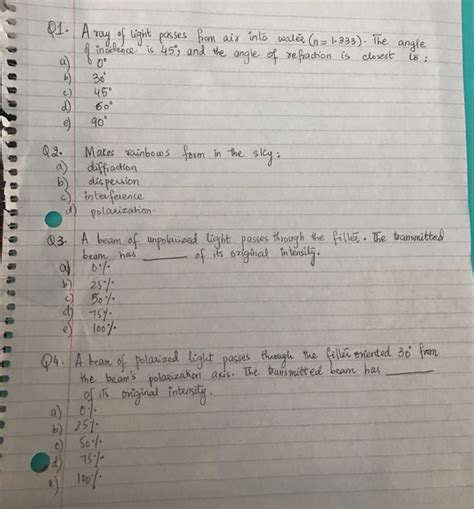 Q1. A ray of light passes from air into water (n=1.333). The angle
of incidence is 45°, and the angle of refraction is closest to:
a) 0°
b) 30°
c) 45°
d) 60°
e) 90°
Q2. Makes rainbows form in the sky:
a) diffraction
b) dispersion
c) interference
d) polarization.
Q3. A beam of unpolarized light passes through the filter. The transmitted
beam has ______ of its original intensity.
a) 0%.
b) 25%.
c) 50%.
d) 75%.
e) 100%.
Q4. A beam of polarized light passes through the filter oriented 30° from
the beam's polarization axis. The transmitted beam has ______
of its original intensity.
a) 0%.
b) 25%.
c) 50%.
d) 75%.
e) 100%.